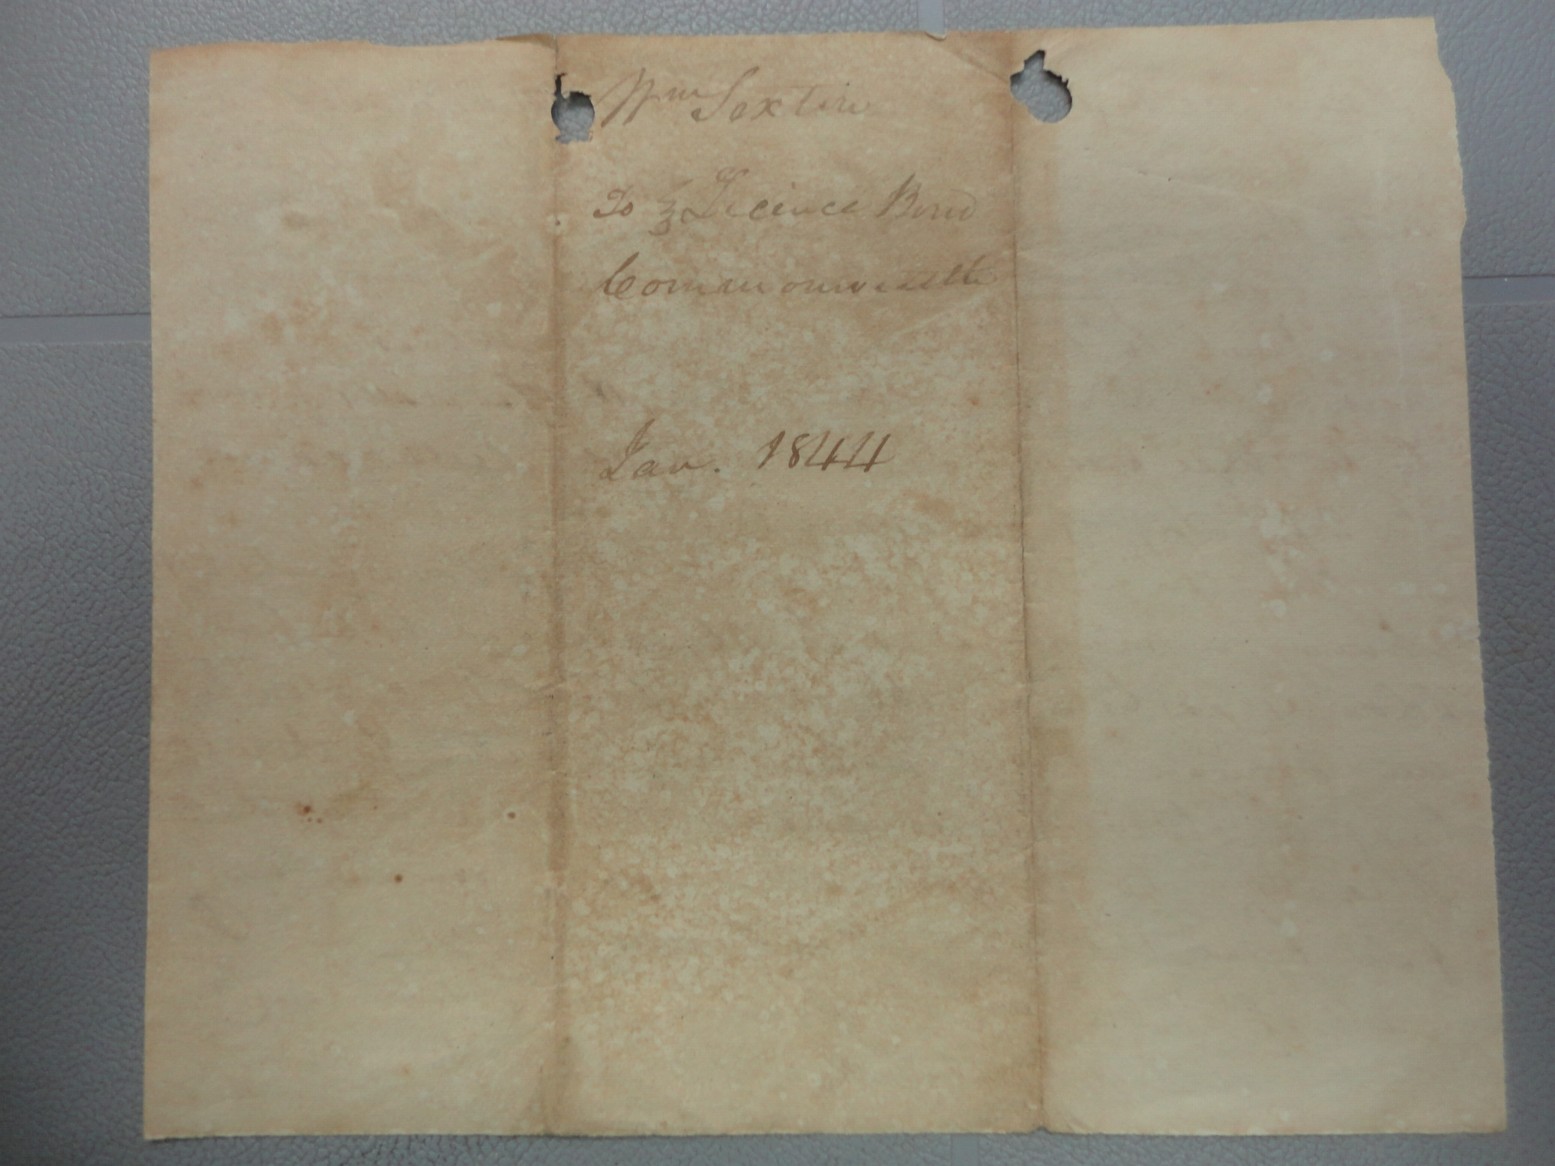 Wm Sextin
To } Licince Bond
Commonwealth
Jan. 1844